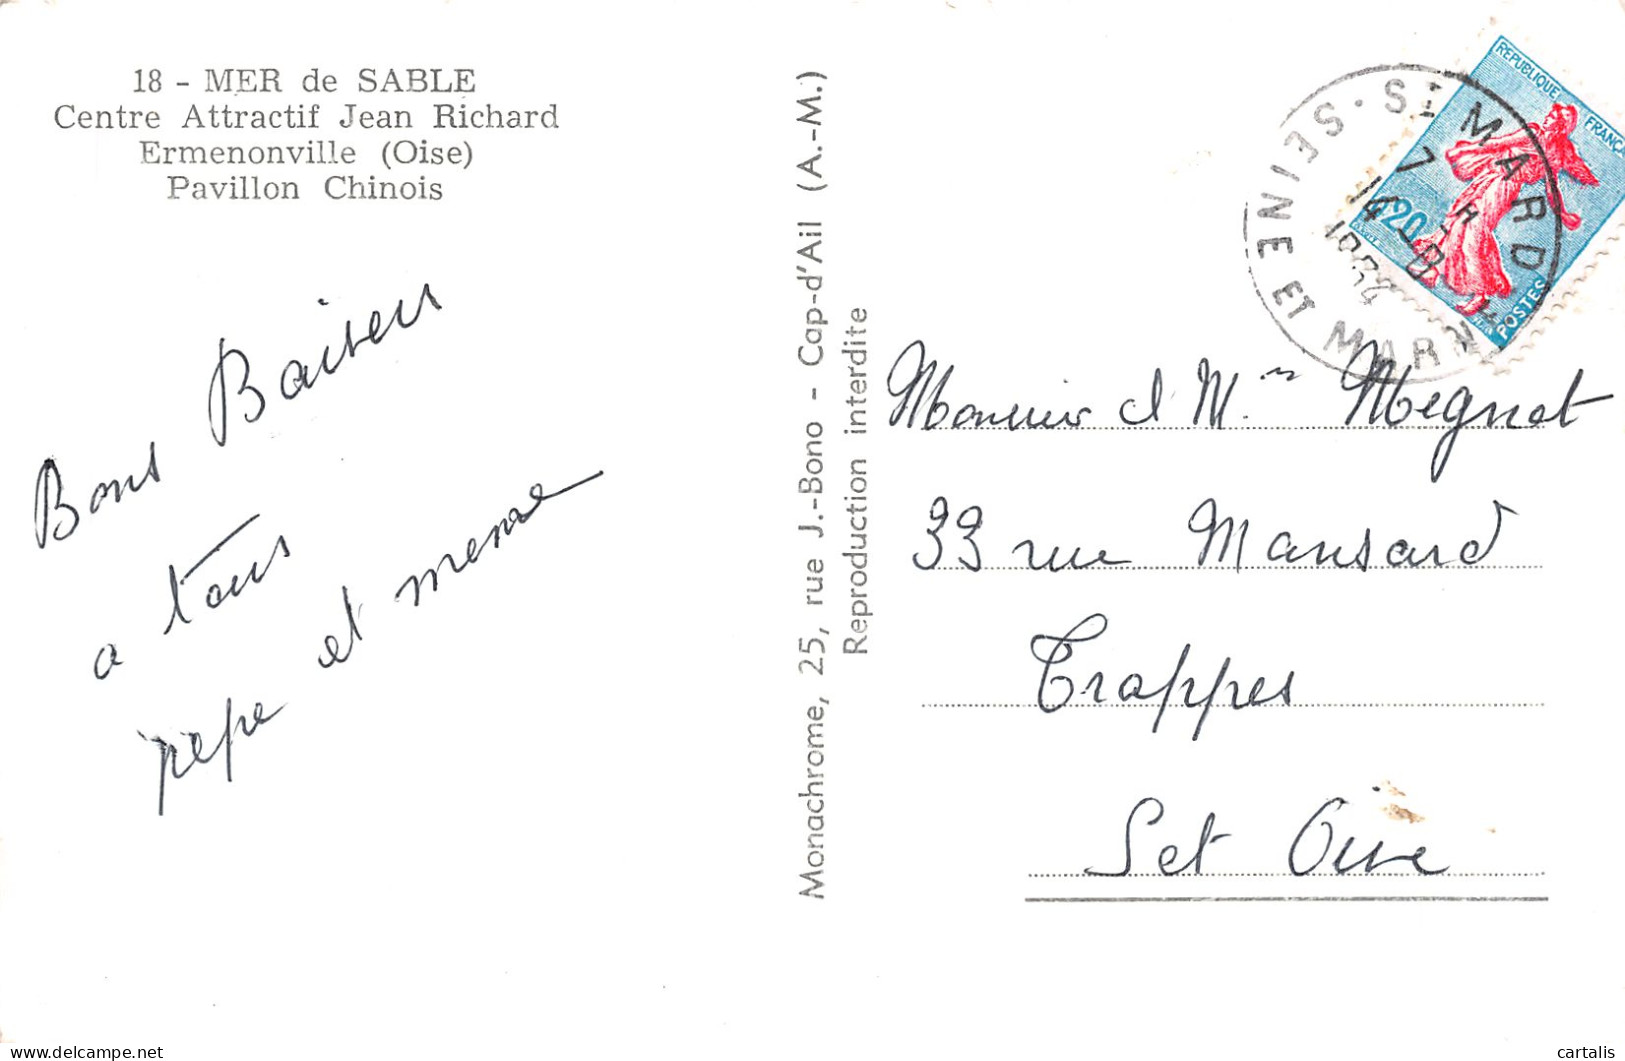 18 - MER de SABLE
Centre Attractif Jean Richard
Ermenonville (Oise)
Pavillon Chinois
Bons Baisers
a tous
pepe et meme
Monachrome, 25, rue J.-Bono - Cap-d'Ail (A.-M.)
Reproduction interdite
REPUBLIQUE FRANÇA
0,20
POSTES
ST MARD
SEINE ET MARNE
7 H
14 -8
Monsieur et Mme Megnot
33 rue Mansard
Trappes
Set Oise
cartalis